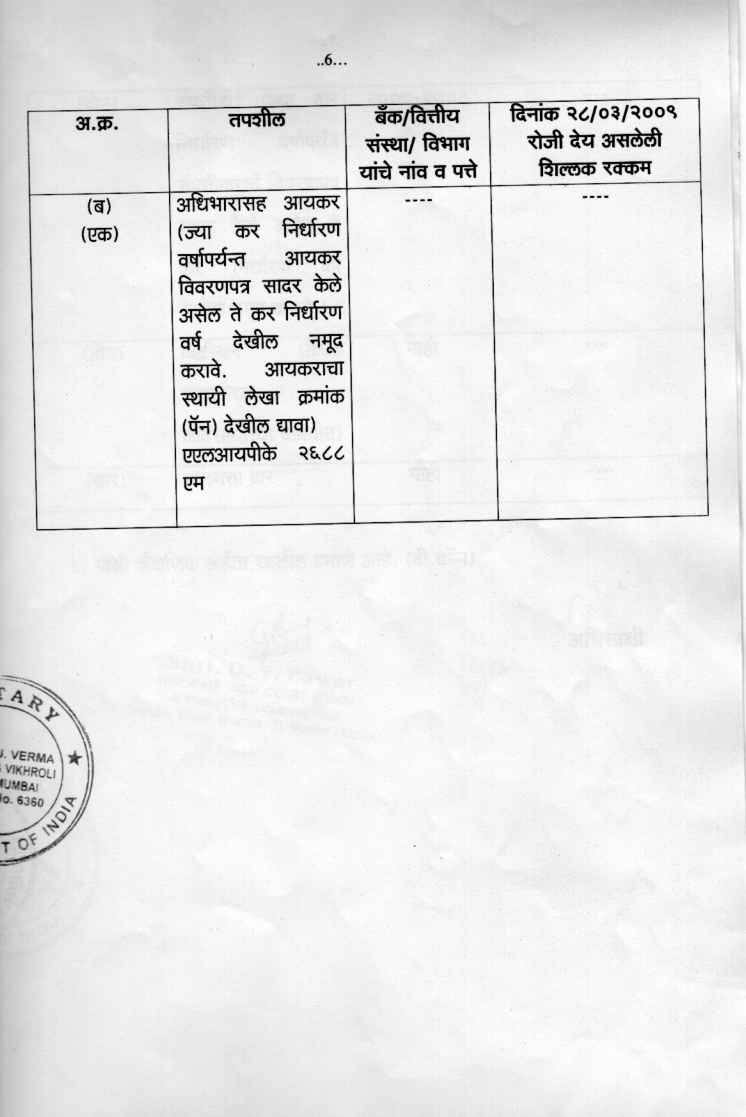 ..6...
अ.क्र.
तपशील
बँक/वित्तीय
संस्था/ विभाग
यांचे नांव व पत्ते
दिनांक २८/०३/२००९
रोजी देय असलेली
शिल्लक रक्कम
(ब)
(एक)
अधिभारासह आयकर
(ज्या कर निर्धारण
वर्षापर्यन्त आयकर
विवरणपत्र सादर केले
असेल ते कर निर्धारण
वर्ष देखील नमूद
करावे. आयकराचा
स्थायी लेखा क्रमांक
(पॅन) देखील द्यावा)
एएलआयपीके २६८८
एम
----
----
TARY
J. VERMA
VIKHROLI
MUMBAI
No. 6360
T OF INDIA